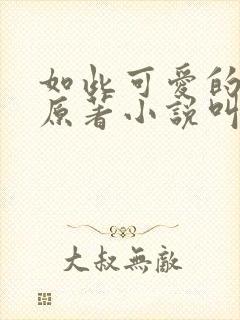 如此可愛的
原著小說叫
大叔無敵